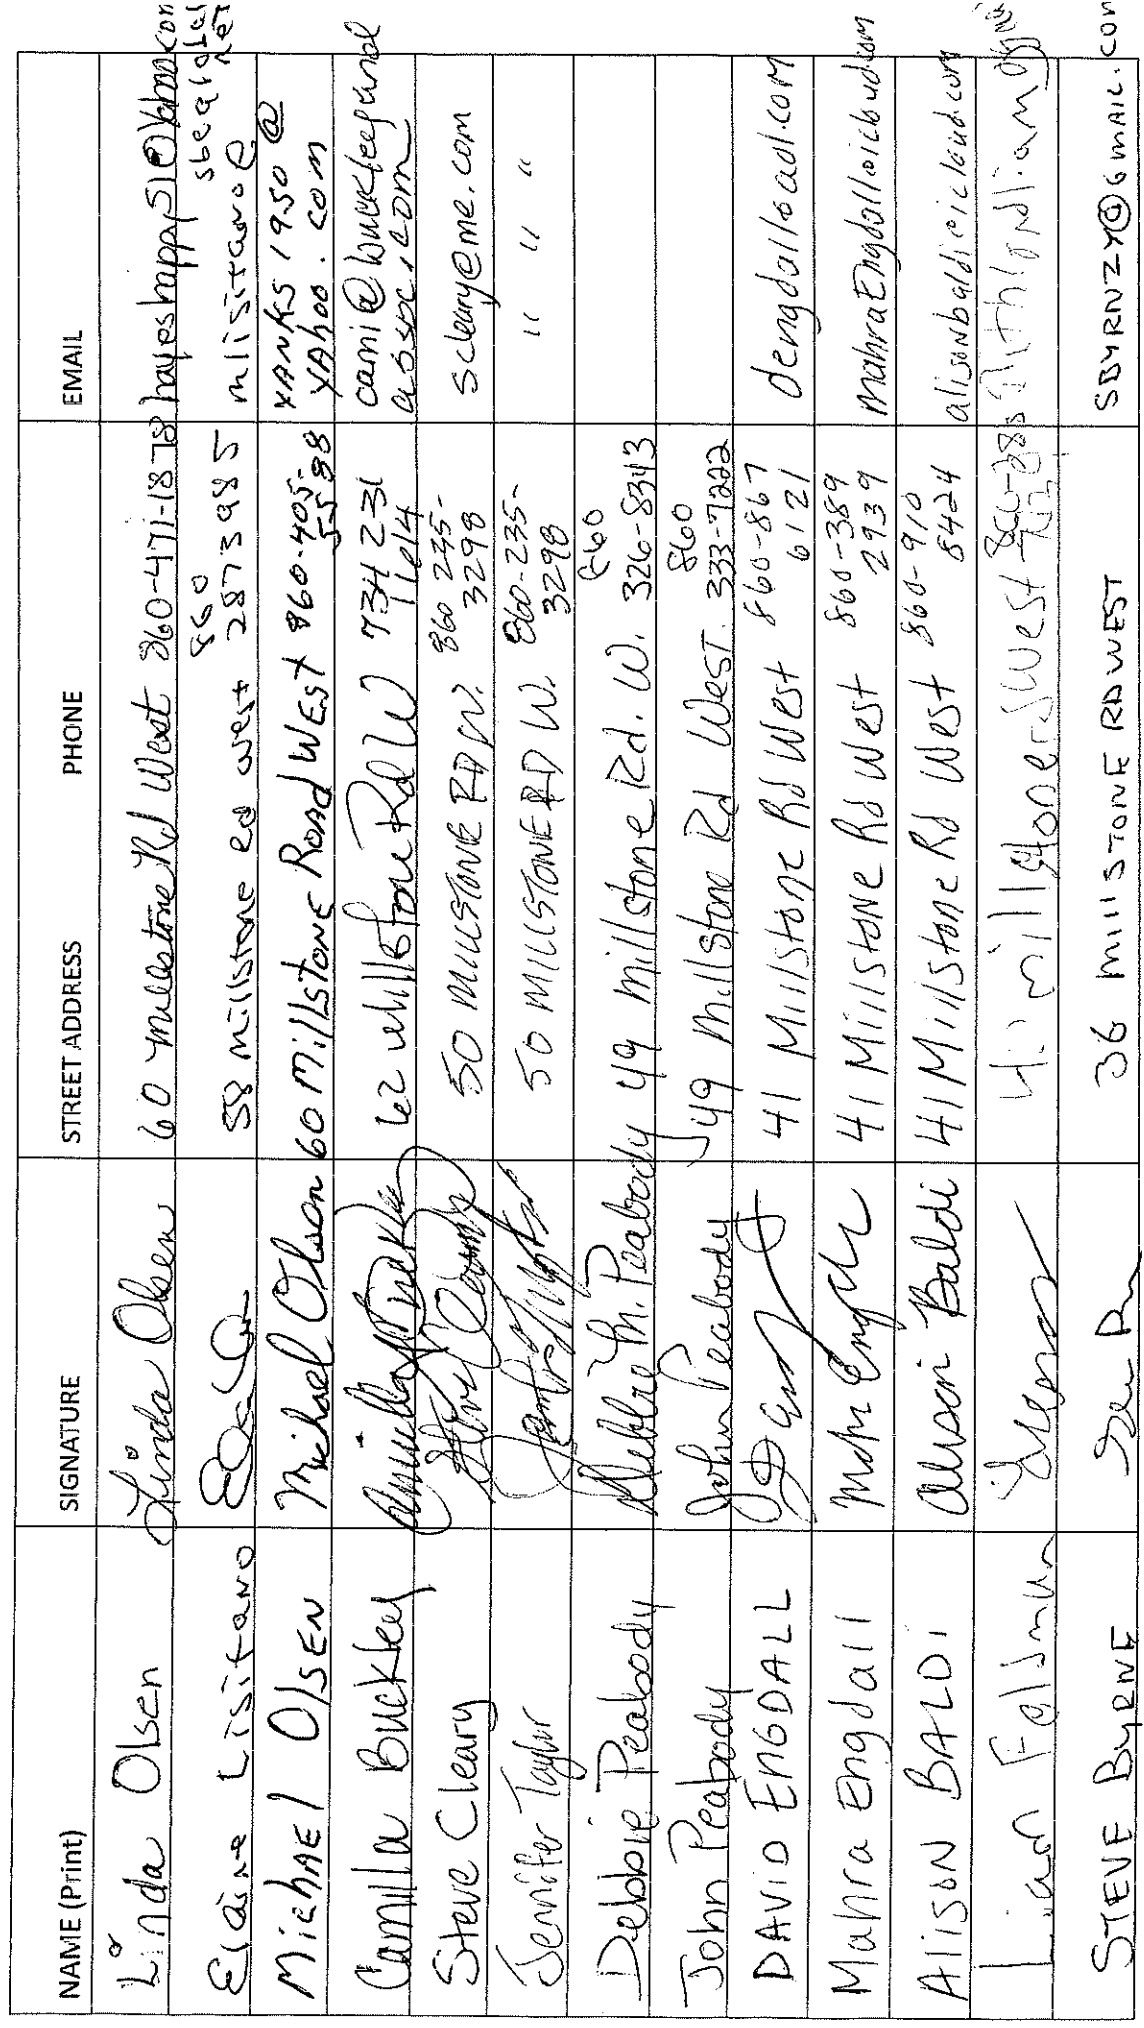 NAME (Print) SIGNATURE STREET ADDRESS PHONE EMAIL
Linda Olsen Linda Olsen 60 Millstone Rd West 860-471-1878 hayeshappy51@yahoo.com
Elaine Lisitano 58 millstone rd west 860 287 3985 mlisitano@sbcglobal.net
Michael Olsen Michael Olsen 60 Millstone Road West 860-405-5598 YANKS1950@YAhoo.com
Camilla Buckley 62 Millstone Rd W 734 231 1614
Steve Cleary Steve Cleary 50 MILLSTONE RD W. 860 235-3298 scleary@me.com
Jennifer Taylor 50 MILLSTONE RD W. 860-235-3298 " " "
Debbie Peabody Debbie M. Peabody 49 Millstone Rd. W. 860 326-8343
John Peabody John Peabody 49 Millstone Rd West. 860 333-7222
DAVID ENGDALL 41 Millstone Rd West 860-867 6121 dengdall@aol.com
Mahra Engdall 41 Millstone Rd West 860-389 2939 mahraEngdall@icloud.com
Alison BALDI Alison Baldi 41 Millstone Rd West 860-910 8424 alisonbaldi@icloud.com
STEVE BYRNE 36 MILLSTONE RD WEST SBYRNZY@GMAIL.COM